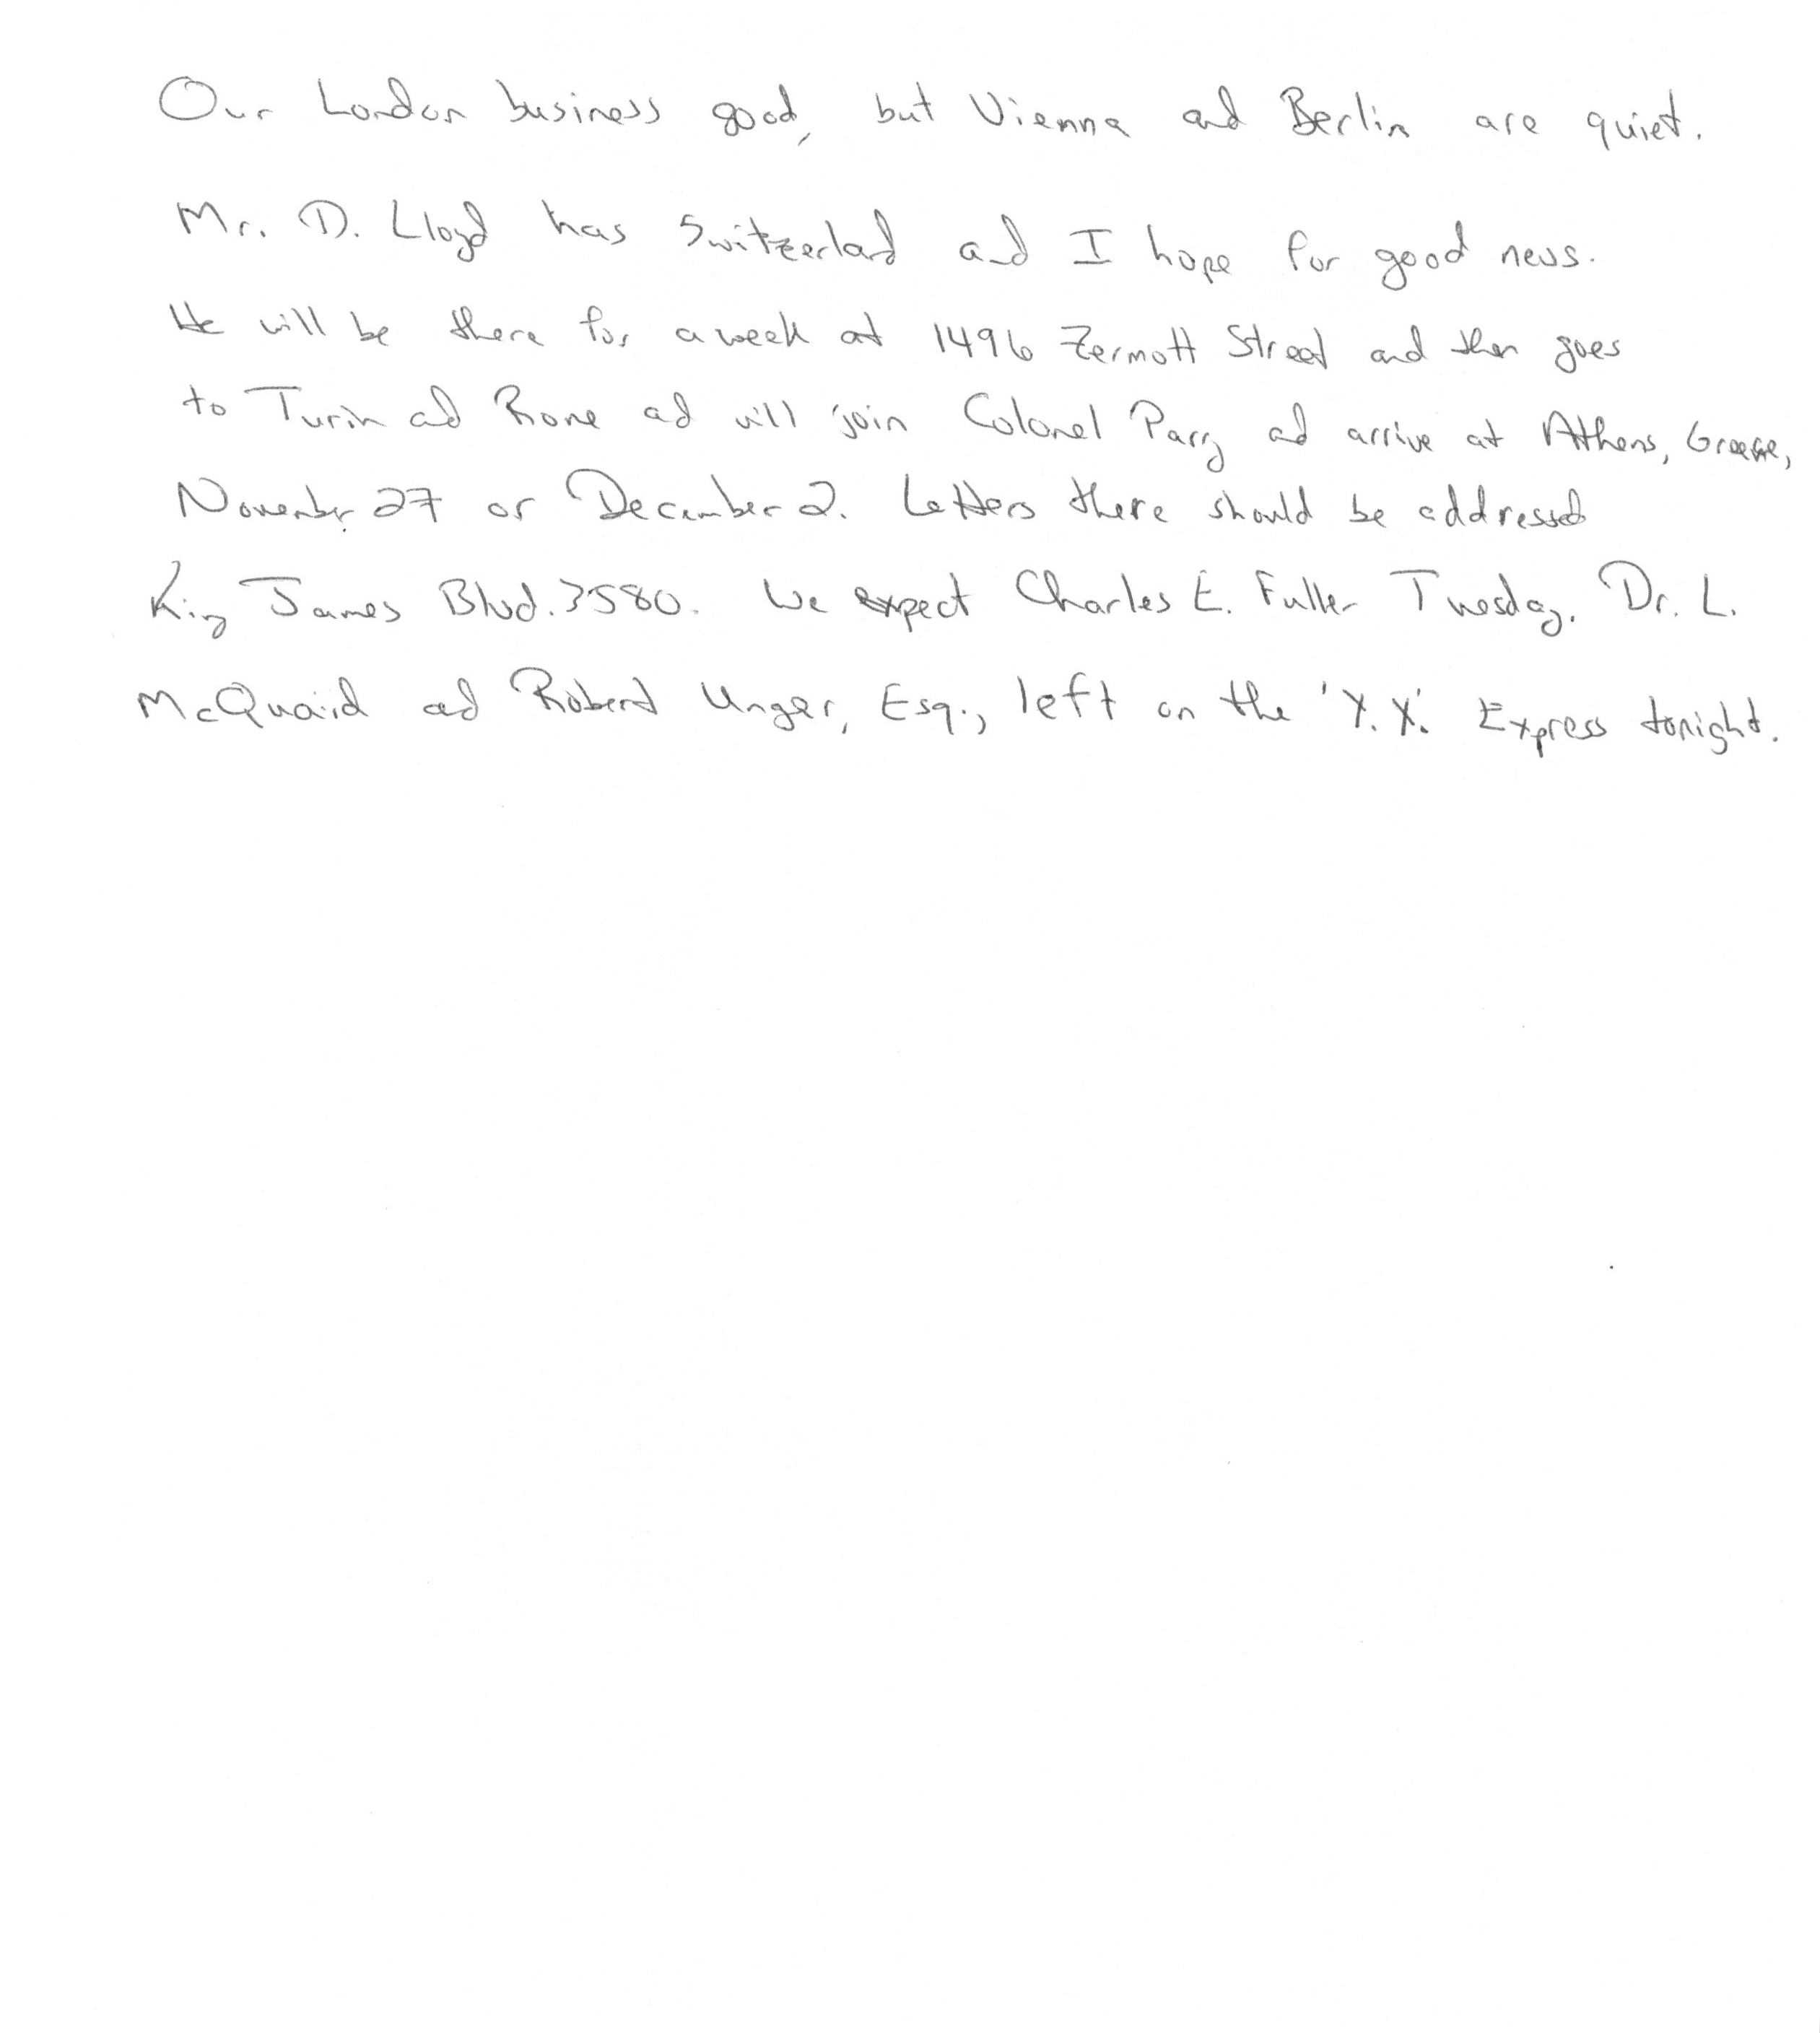 Our London business good, but Vienna and Berlin are quiet.
Mr. D. Lloyd has Switzerland and I hope for good news.
He will be there for a week at 1496 Zermott Street and then goes
to Turin and Rome and will join Colonel Parry and arrive at Athens, Greece,
November 27 or December 2. Letters there should be addressed
King James Blvd. 3580. We expect Charles E. Fuller Tuesday. Dr. L.
McQuaid and Robert Unger, Esq., left on the 'Y.X.' Express tonight.